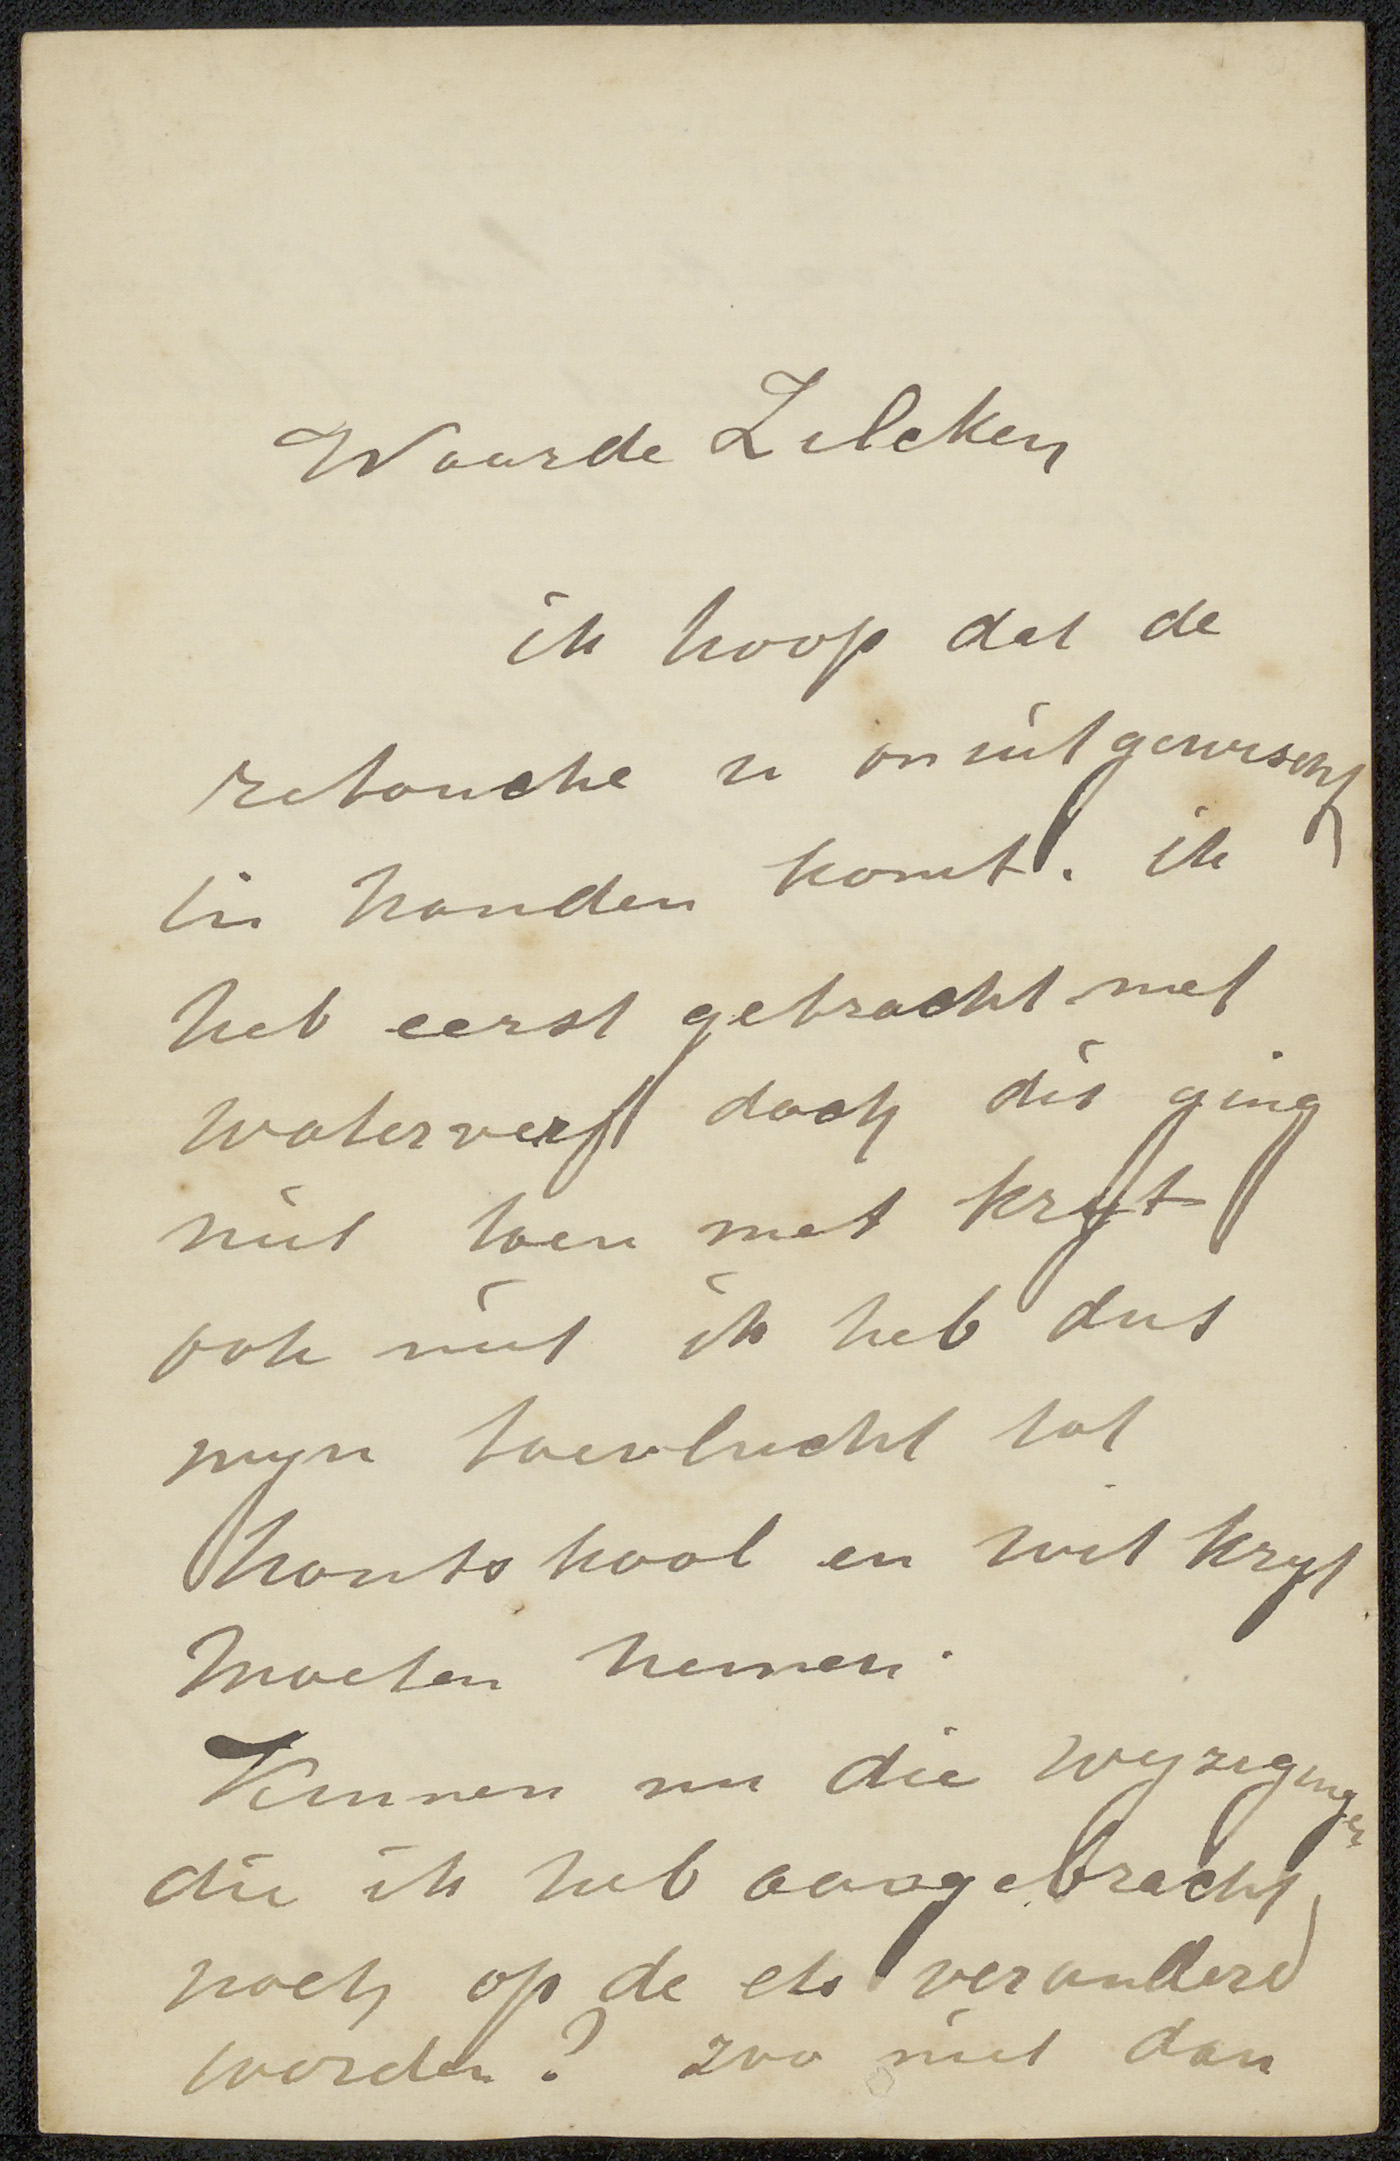 Waarde Zilcken
ik hoop dat de
retouche u onuitgewischt
in handen komt. ik
heb eerst getracht met
waterverf doch dis ging
niet toen met kryt
ook niet ik heb dus
myn toevlucht tot
houtskool en wit kryt
moeten nemen.
Kunnen nu die wyzigingen
die ik heb aangebracht
noch op de ets veranderd
worden? zoo niet dan